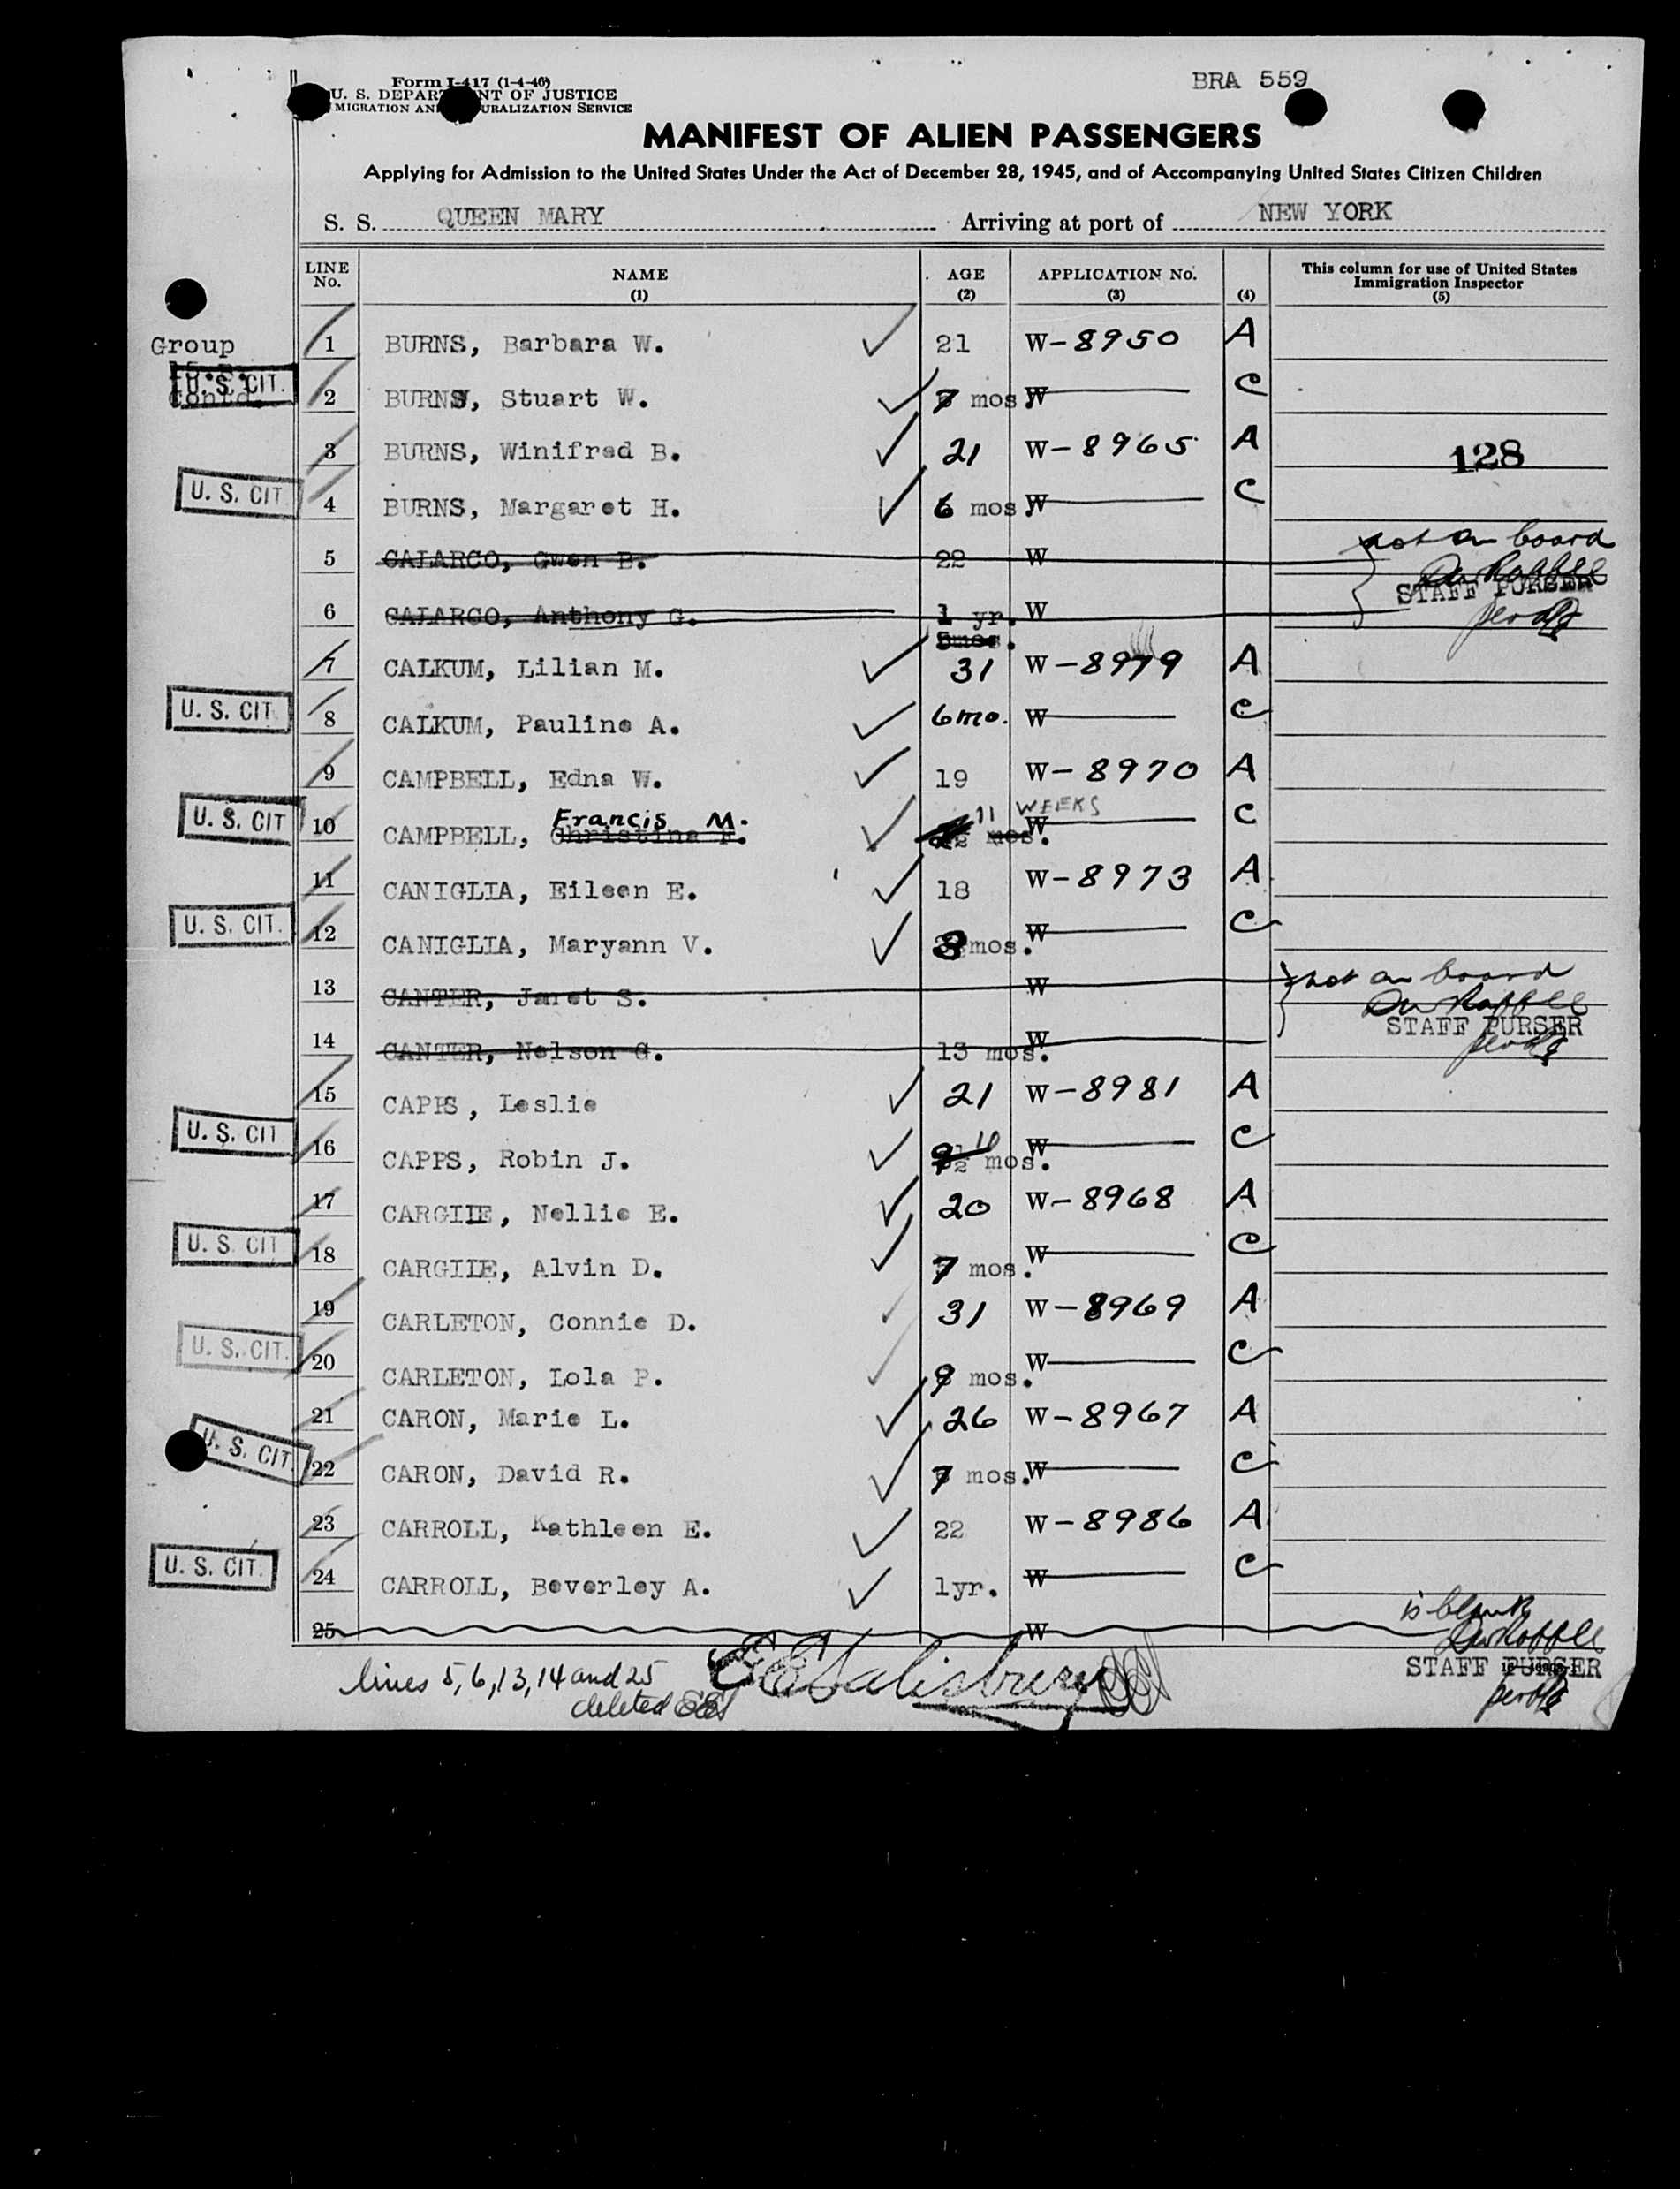 Form I-417 (1-4-46)
BRA 559
U. S. DEPARTMENT OF JUSTICE
IMMIGRATION AND NATURALIZATION SERVICE
MANIFEST OF ALIEN PASSENGERS
Applying for Admission to the United States Under the Act of December 28, 1945, and of Accompanying United States Citizen Children
S. S. QUEEN MARY Arriving at port of NEW YORK
LINE No. NAME (1) AGE (2) APPLICATION No. (3) (4) This column for use of United States Immigration Inspector (5)
Group
1 BURNS, Barbara W. 21 W-8950 A
Contd. U. S. CIT. 2 BURNS, Stuart W. 7 mos. W C
3 BURNS, Winifred B. 21 W-8965 A 128
U. S. CIT 4 BURNS, Margaret H. 6 mos. W C
5 CALARCO, Gwen B. 22 W not on board
STAFF PURSER
6 CALARCO, Anthony G. 1 yr. W
5mos.
7 CALKUM, Lilian M. 31 W-8979 A
U. S. CIT. 8 CALKUM, Pauline A. 6mo. W C
9 CAMPBELL, Edna W. 19 W-8970 A
U. S. CIT 10 CAMPBELL, Christina F. Francis M. 11 WEEKS mos. W C
11 CANIGLIA, Eileen E. 18 W-8973 A
U. S. CIT. 12 CANIGLIA, Maryann V. 8 mos. W C
13 CANTER, Janet S. W not on board
STAFF PURSER
14 CANTER, Nelson G. 13 mos. W
15 CAPPS, Leslie 21 W-8981 A
U. S. CIT 16 CAPPS, Robin J. 10 mos. W C
17 CARGILE, Nellie E. 20 W-8968 A
U. S. CIT 18 CARGILE, Alvin D. 7 mos. W C
19 CARLETON, Connie D. 31 W-8969 A
U. S. CIT. 20 CARLETON, Lola P. 9 mos. W C
21 CARON, Marie L. 26 W-8967 A
U. S. CIT. 22 CARON, David R. 7 mos. W C
23 CARROLL, Kathleen E. 22 W-8986 A
U. S. CIT. 24 CARROLL, Beverley A. 1yr. W C
25 W is blank
STAFF PURSER
lines 5, 6, 13, 14 and 25
deleted EES
EESalisbury